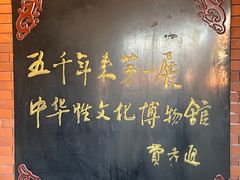 五千年来第一展
中华性文化博物馆
费孝通